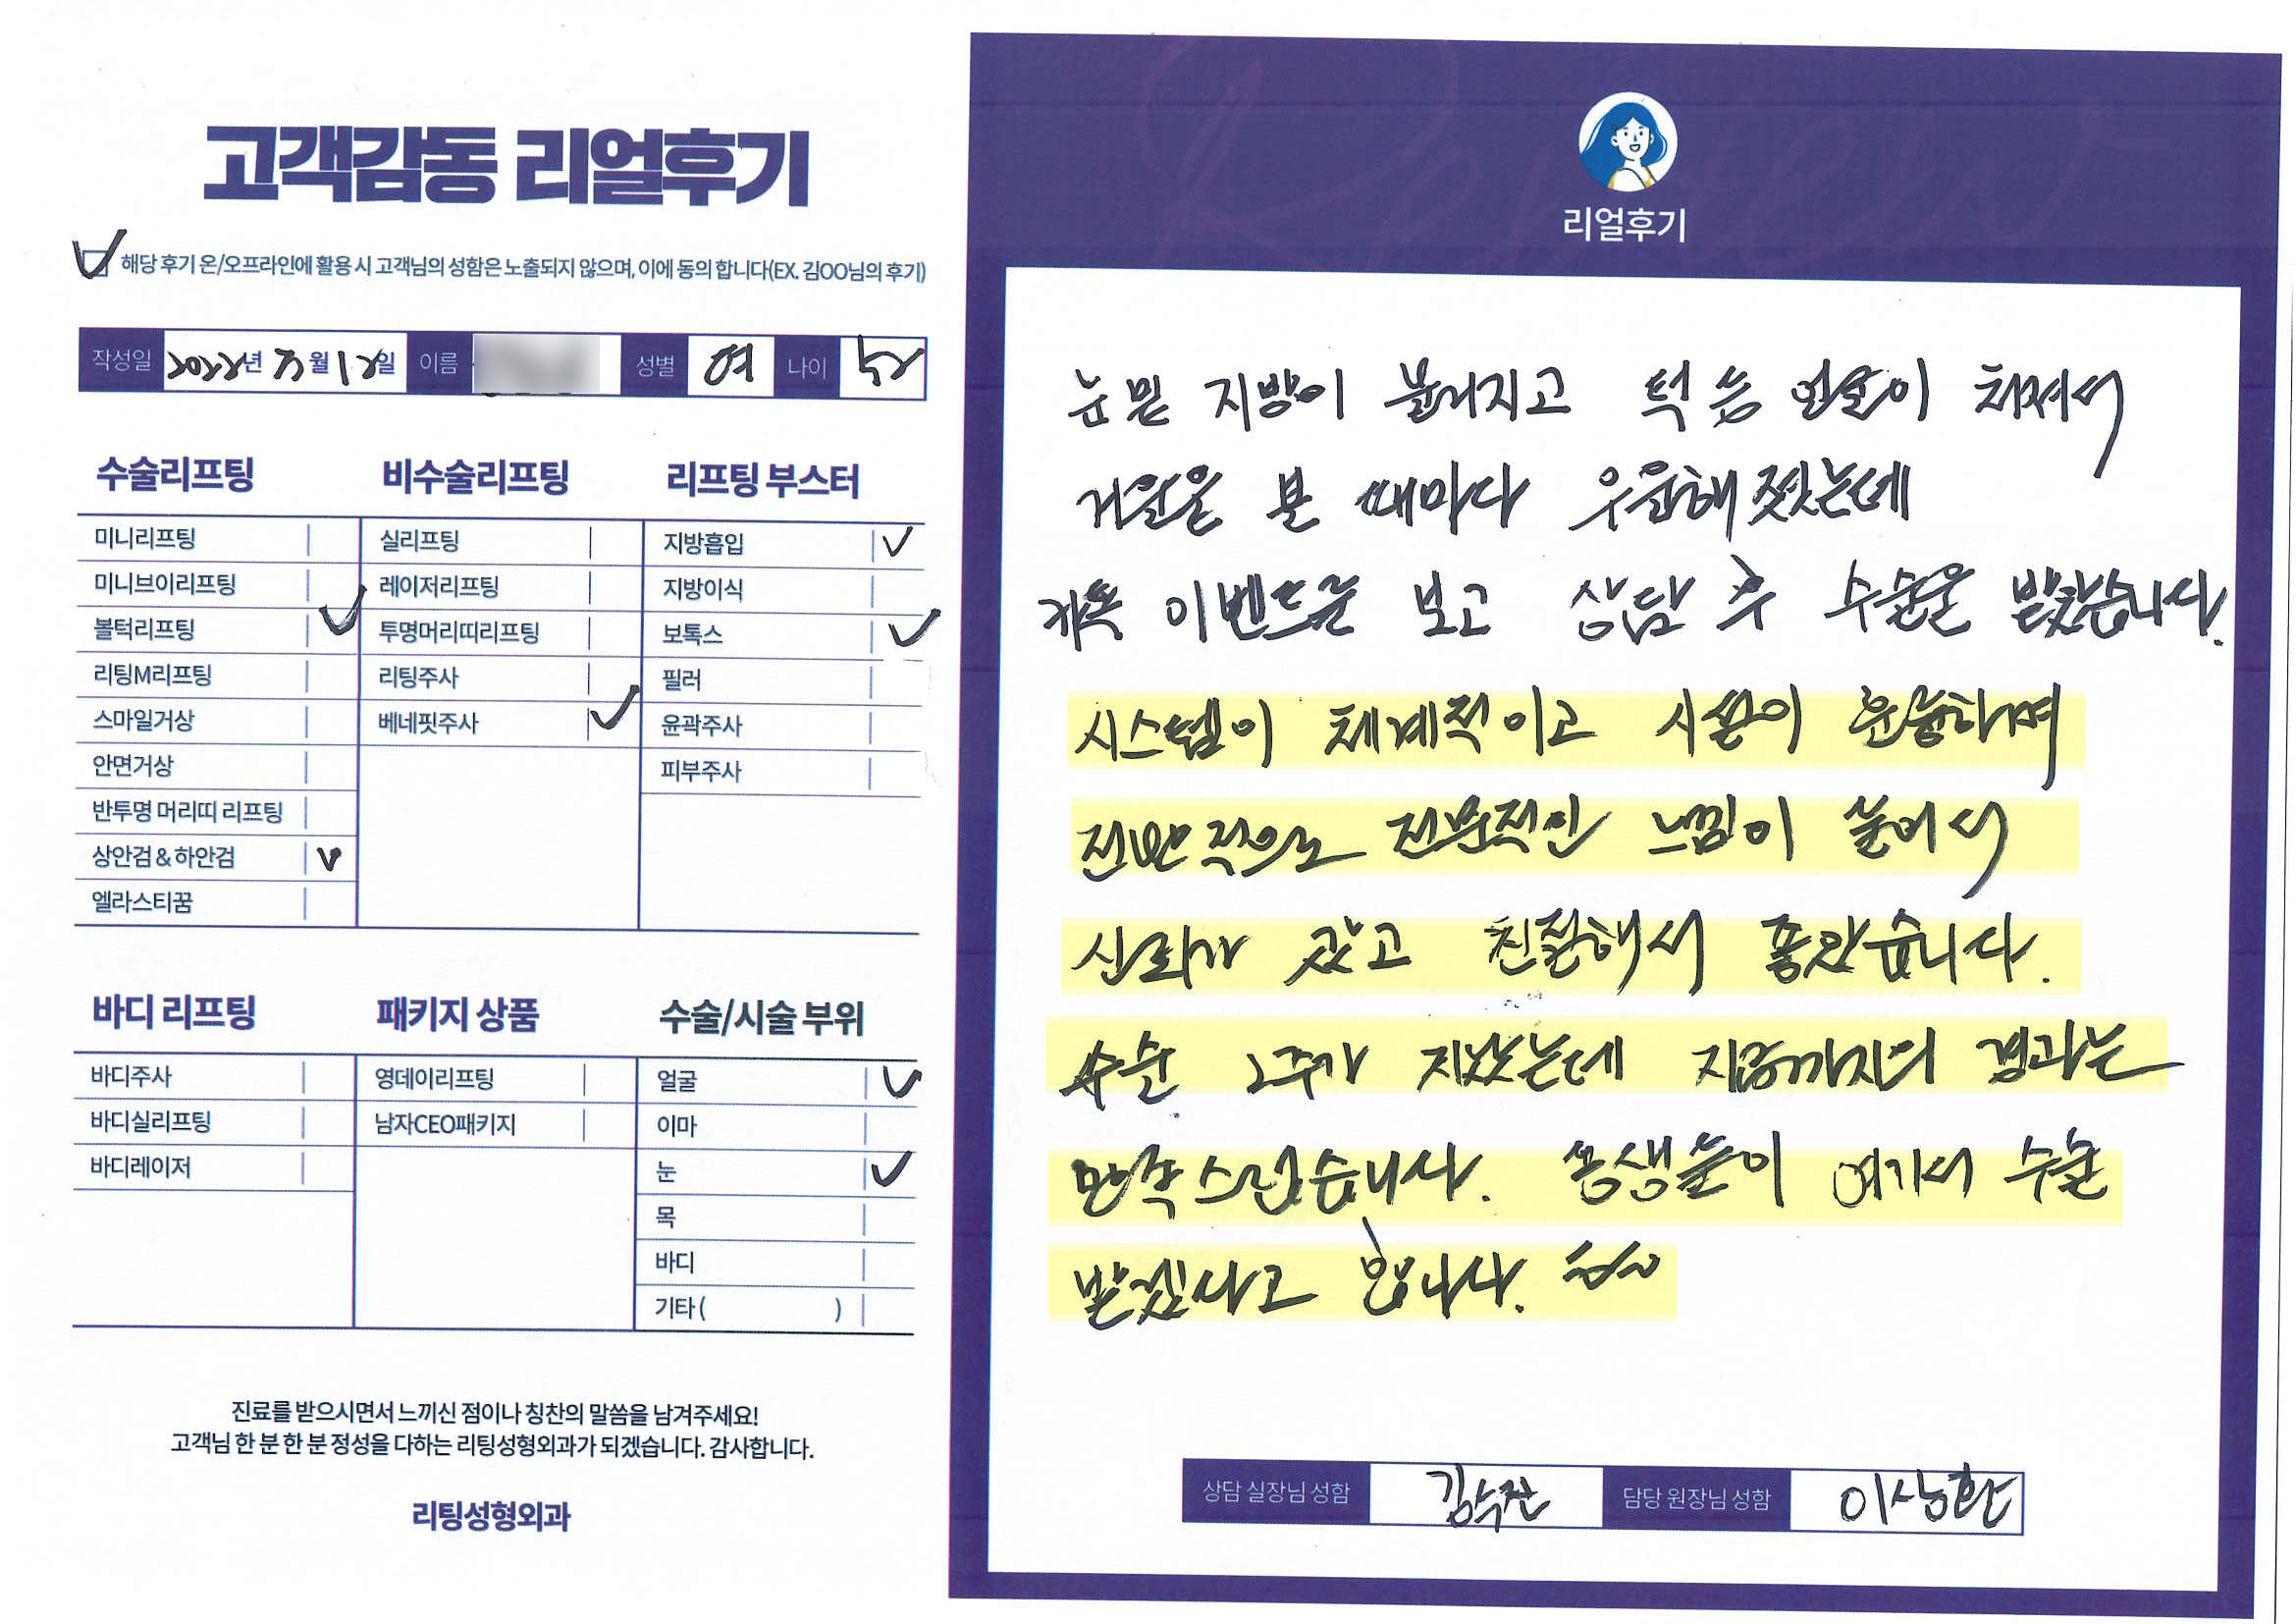 고객감동 리얼후기
해당 후기 온/오프라인에 활용 시 고객님의 성함은 노출되지 않으며, 이에 동의 합니다(EX. 김OO님의 후기)
작성일 2022년 5월 12일 이름 성별 여 나이 52
수술리프팅
미니리프팅
미니브이리프팅
볼턱리프팅
리팅M리프팅
스마일거상
안면거상
반투명 머리띠 리프팅
상안검 & 하안검
엘라스티꿈
비수술리프팅
실리프팅
레이저리프팅
투명머리띠리프팅
리팅주사
베네핏주사
리프팅 부스터
지방흡입
지방이식
보톡스
필러
윤곽주사
피부주사
바디 리프팅
바디주사
바디실리프팅
바디레이저
패키지 상품
영데이리프팅
남자CEO패키지
수술/시술 부위
얼굴
이마
눈
목
바디
기타 ( )
진료를 받으시면서 느끼신 점이나 칭찬의 말씀을 남겨주세요!
고객님 한 분 한 분 정성을 다하는 리팅성형외과가 되겠습니다. 감사합니다.
리팅성형외과
리얼후기
눈밑 지방이 불러지고 턱 등 얼굴이 처져서
거울을 볼 때마다 우울해졌는데
카톡 이벤트를 보고 상담 후 수술을 받았습니다.
시스템이 체계적이고 시설이 훌륭하며
전반적으로 전문적인 느낌이 들어서
신뢰가 갔고 친절해서 좋았습니다.
수술 2주가 지났는데 지금까지의 결과는
만족스럽습니다. 동생들이 여기서 수술
받겠다고 합니다.
상담 실장님 성함 김수진 담당 원장님 성함 이상환